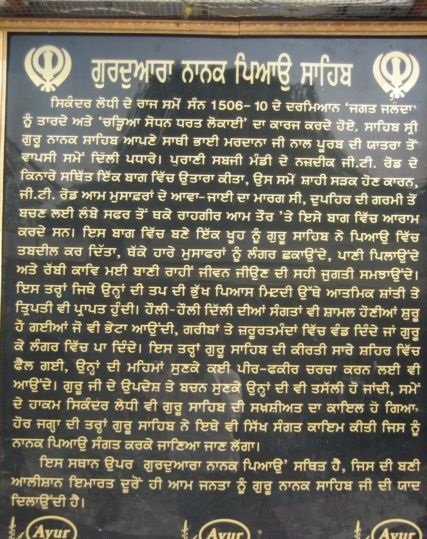 ਗੁਰਦੁਆਰਾ ਨਾਨਕ ਪਿਆਉ ਸਾਹਿਬ
ਸਿਕੰਦਰ ਲੋਧੀ ਦੇ ਰਾਜ ਸਮੇਂ ਸੰਨ 1506-10 ਦੇ ਦਰਮਿਆਨ 'ਜਗਤ ਜਲੰਦਾ'
ਨੂੰ ਤਾਰਦੇ ਅਤੇ 'ਚੜ੍ਹਿਆ ਸੋਧਨ ਧਰਤ ਲੋਕਾਈ' ਦਾ ਕਾਰਜ ਕਰਦੇ ਹੋਏ, ਸਾਹਿਬ ਸ੍ਰੀ
ਗੁਰੂ ਨਾਨਕ ਸਾਹਿਬ ਆਪਣੇ ਸਾਥੀ ਭਾਈ ਮਰਦਾਨਾ ਜੀ ਨਾਲ ਪੂਰਬ ਦੀ ਯਾਤਰਾ ਤੋਂ
ਵਾਪਸੀ ਸਮੇਂ ਦਿੱਲੀ ਪਧਾਰੇ। ਪੁਰਾਣੀ ਸਬਜੀ ਮੰਡੀ ਦੇ ਨਜ਼ਦੀਕ ਜੀ.ਟੀ. ਰੋਡ ਦੇ
ਕਿਨਾਰੇ ਸਥਿੱਤ ਇੱਕ ਬਾਗ ਵਿੱਚ ਉਤਾਰਾ ਕੀਤਾ, ਉਸ ਸਮੇਂ ਸ਼ਾਹੀ ਸੜਕ ਹੋਣ ਕਾਰਨ,
ਜੀ.ਟੀ. ਰੋਡ ਆਮ ਮੁਸਾਫ਼ਰਾਂ ਦੇ ਆਵਾ-ਜਾਈ ਦਾ ਮਾਰਗ ਸੀ, ਦੁਪਹਿਰ ਦੀ ਗਰਮੀ ਤੋਂ
ਬਚਣ ਲਈ ਲੰਬੇ ਸਫਰ ਤੋਂ ਥਕੇ ਰਾਹਗੀਰ ਆਮ ਤੌਰ 'ਤੇ ਇਸੇ ਬਾਗ ਵਿੱਚ ਆਰਾਮ
ਕਰਦੇ ਸਨ। ਇਸ ਬਾਗ ਵਿੱਚ ਬਣੇ ਇੱਕ ਖੂਹ ਨੂੰ ਗੁਰੂ ਸਾਹਿਬ ਨੇ ਪਿਆਓ ਵਿੱਚ
ਤਬਦੀਲ ਕਰ ਦਿੱਤਾ, ਥੱਕੇ ਹਾਰੇ ਮੁਸਾਫਰਾਂ ਨੂੰ ਲੰਗਰ ਛਕਾਉਂਦੇ, ਪਾਣੀ ਪਿਲਾਉਂਦੇ
ਅਤੇ ਰੱਬੀ ਕਾਵਿ ਮਈ ਬਾਣੀ ਰਾਹੀਂ ਜੀਵਨ ਜੀਉਣ ਦੀ ਸਹੀ ਜੁਗਤੀ ਸਮਝਾਉਂਦੇ।
ਇਸ ਤਰ੍ਹਾਂ ਜਿਥੇ ਉਨ੍ਹਾਂ ਦੀ ਤਪ ਦੀ ਭੁੱਖ ਪਿਆਸ ਮਿਟਦੀ ਉੱਥੇ ਆਤਮਿਕ ਸ਼ਾਂਤੀ ਤੇ
ਤ੍ਰਿਪਤੀ ਵੀ ਪ੍ਰਾਪਤ ਹੁੰਦੀ। ਹੌਲੀ-ਹੌਲੀ ਦਿੱਲੀ ਦੀਆਂ ਸੰਗਤਾਂ ਵੀ ਸ਼ਾਮਲ ਹੋਣੀਆਂ ਸ਼ੁਰੂ
ਹੋ ਗਈਆਂ ਜੋ ਵੀ ਭੇਟਾ ਆਉਂਦੀ, ਗਰੀਬਾਂ ਤੇ ਜ਼ਰੂਰਤਮੰਦਾਂ ਵਿੱਚ ਵੰਡ ਦਿੰਦੇ ਜਾਂ ਗੁਰੂ
ਕੇ ਲੰਗਰ ਵਿੱਚ ਪਾ ਦਿੰਦੇ। ਇਸ ਤਰ੍ਹਾਂ ਗੁਰੂ ਸਾਹਿਬ ਦੀ ਕੀਰਤੀ ਸਾਰੇ ਸ਼ਹਿਰ ਵਿੱਚ
ਫੈਲ ਗਈ, ਉਨ੍ਹਾਂ ਦੀ ਮਹਿਮਾਂ ਸੁਣਕੇ ਕਈ ਪੀਰ-ਫਕੀਰ ਚਰਚਾ ਕਰਨ ਲਈ ਵੀ
ਆਉਂਦੇ। ਗੁਰੂ ਜੀ ਦੇ ਉਪਦੇਸ਼ ਤੇ ਬਚਨ ਸੁਣਕੇ ਉਨ੍ਹਾਂ ਦੀ ਵੀ ਤਸੱਲੀ ਹੋ ਜਾਂਦੀ, ਸਮੇਂ
ਦੇ ਹਾਕਮ ਸਿਕੰਦਰ ਲੋਧੀ ਵੀ ਗੁਰੂ ਸਾਹਿਬ ਦੀ ਸਖਸ਼ੀਅਤ ਦਾ ਕਾਇਲ ਹੋ ਗਿਆ,
ਹੋਰ ਜਗ੍ਹਾ ਦੀ ਤਰ੍ਹਾਂ ਗੁਰੂ ਸਾਹਿਬ ਨੇ ਇਥੇ ਵੀ ਸਿੱਖ ਸੰਗਤ ਕਾਇਮ ਕੀਤੀ ਜਿਸ ਨੂੰ
ਨਾਨਕ ਪਿਆਉ ਸੰਗਤ ਕਰਕੇ ਜਾਣਿਆ ਜਾਣ ਲੱਗਾ।
ਇਸ ਸਥਾਨ ਉਪਰ 'ਗੁਰਦੁਆਰਾ ਨਾਨਕ ਪਿਆਉ' ਸਥਿਤ ਹੈ, ਜਿਸ ਦੀ ਬਣੀ
ਆਲੀਸ਼ਾਨ ਇਮਾਰਤ ਦੂਰੋਂ ਹੀ ਆਮ ਜਨਤਾ ਨੂੰ ਗੁਰੂ ਨਾਨਕ ਸਾਹਿਬ ਜੀ ਦੀ ਯਾਦ
ਦਿਲਾਉਂਦੀ ਹੈ।
Ayur Ayur Ayur